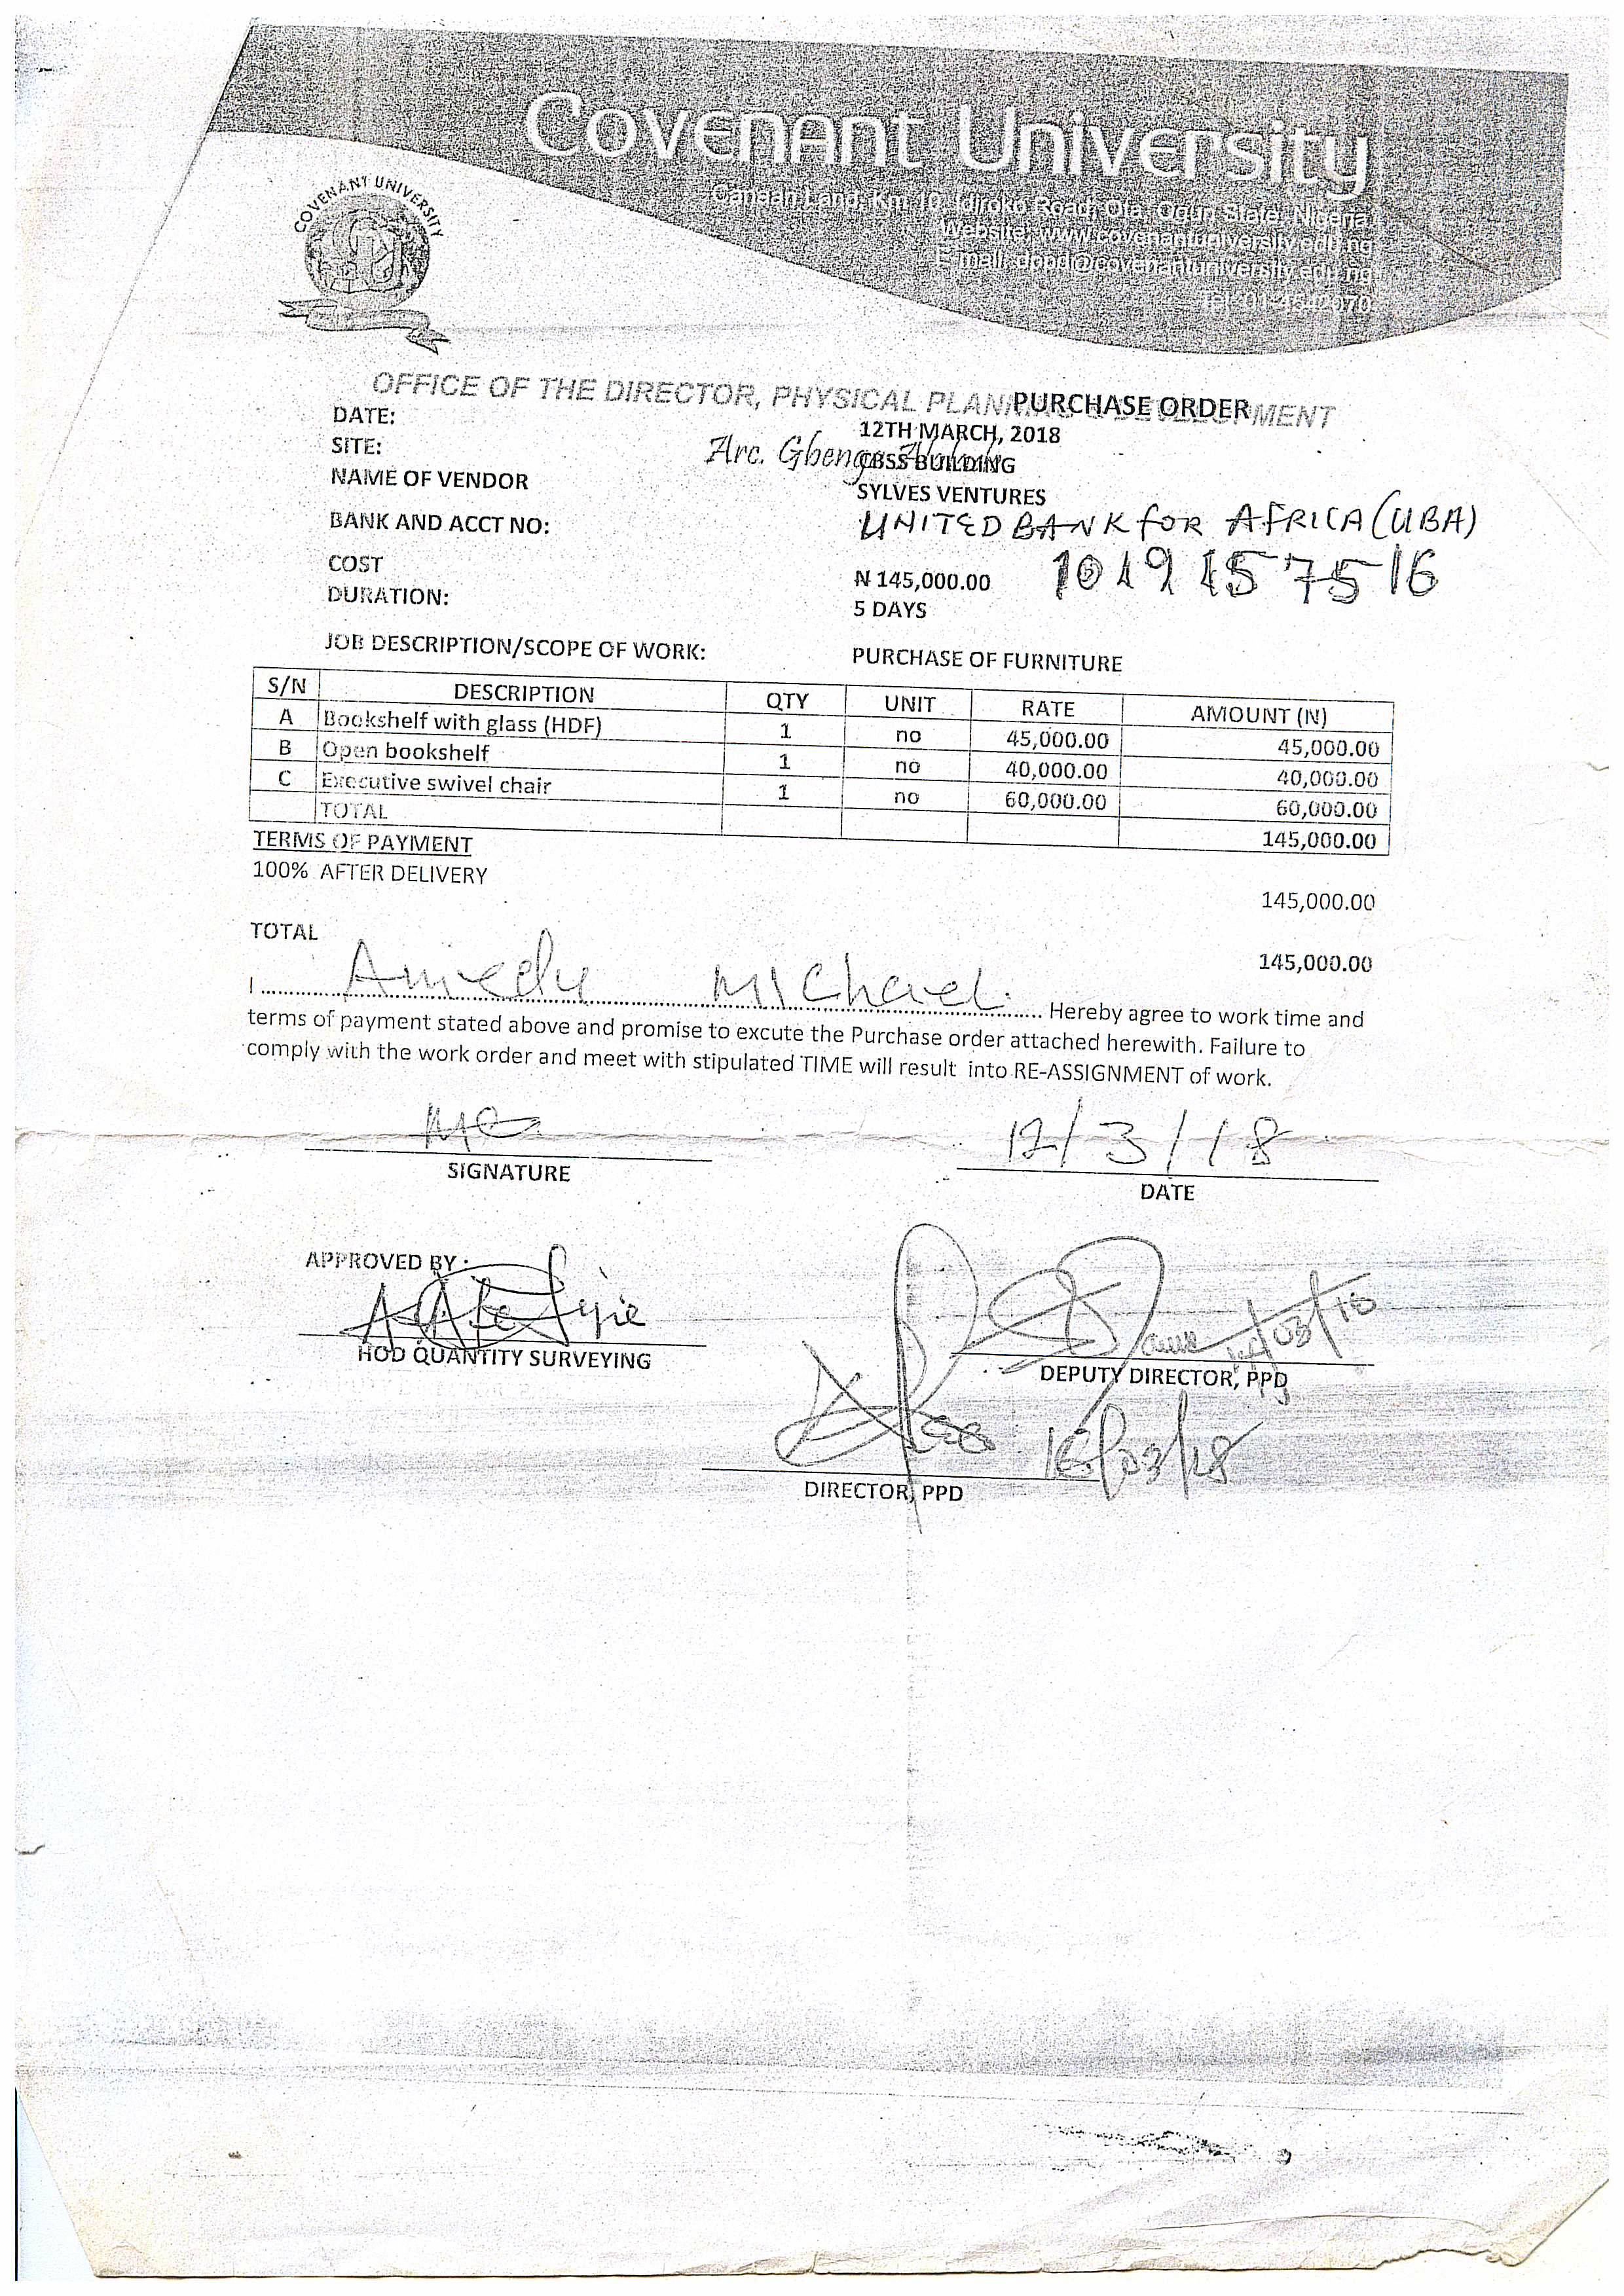 Covenant University
Canaan Land, Km 10, Idiroko Road, Ota, Ogun State, Nigeria
Website: www.covenantuniversity.edu.ng
E-mail: dppd@covenantuniversity.edu.ng
Tel: 01-4542070
COVENANT UNIVERSITY
OFFICE OF THE DIRECTOR, PHYSICAL PLANNING & DEVELOPMENT
PURCHASE ORDER
DATE: 12TH MARCH, 2018
Arc. Gbenga
SITE: CBSS BUILDING
NAME OF VENDOR SYLVES VENTURES
BANK AND ACCT NO: UNITED BANK FOR AFRICA (UBA)
1019157516
COST N 145,000.00
DURATION: 5 DAYS
JOB DESCRIPTION/SCOPE OF WORK: PURCHASE OF FURNITURE
S/N DESCRIPTION QTY UNIT RATE AMOUNT (N)
A Bookshelf with glass (HDF) 1 no 45,000.00 45,000.00
B Open bookshelf 1 no 40,000.00 40,000.00
C Executive swivel chair 1 no 60,000.00 60,000.00
TOTAL 145,000.00
TERMS OF PAYMENT
100% AFTER DELIVERY 145,000.00
TOTAL 145,000.00
I Amedu Michael. Hereby agree to work time and
terms of payment stated above and promise to excute the Purchase order attached herewith. Failure to
comply with the work order and meet with stipulated TIME will result into RE-ASSIGNMENT of work.
12/3/18
SIGNATURE DATE
APPROVED BY :
HOD QUANTITY SURVEYING
DEPUTY DIRECTOR, PPD
16/03/18
DIRECTOR, PPD